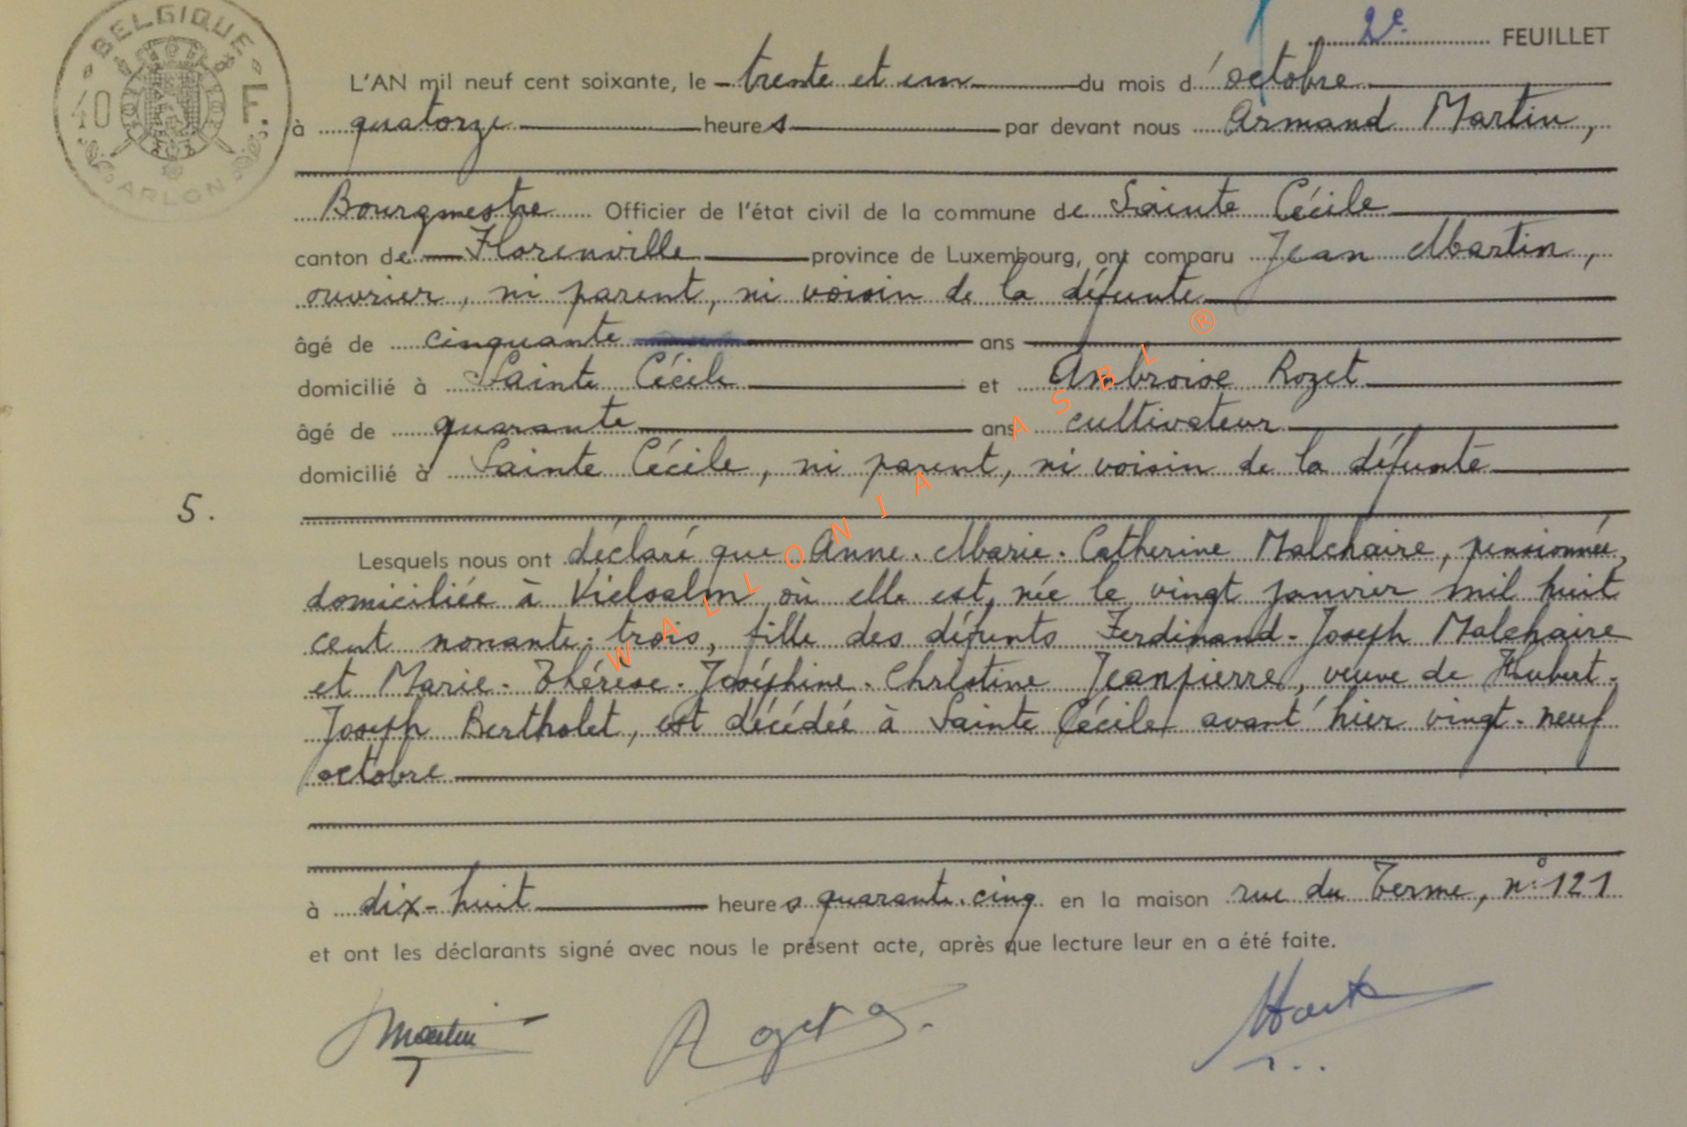 BELGIQUE
40 F.
ARLON
2e FEUILLET
L'AN mil neuf cent soixante, le trente et un du mois d'octobre
à quatorze heures par devant nous Armand Martin,
Bourgmestre Officier de l'état civil de la commune de Sainte Cécile
canton de Florenville province de Luxembourg, ont comparu Jean Martin,
ouvrier, ni parent, ni voisin de la défunte
âgé de cinquante ans
domicilié à Sainte Cécile et Ambroise Rozet
âgé de quarante ans cultivateur
domicilié à Sainte Cécile, ni parent, ni voisin de la défunte
5.
Lesquels nous ont déclaré que Anne-Marie-Catherine Malchaire, pensionnée,
domiciliée à Vielsalm où elle est née le vingt janvier mil huit
cent nonante-trois, fille des défunts Ferdinand-Joseph Malchaire
et Marie-Thérèse-Joséphine-Christine Jeanpierre, veuve de Hubert-
Joseph Bertholet, est décédée à Sainte Cécile avant hier vingt-neuf
octobre
à dix-huit heures quarante-cinq en la maison rue du Terme, n° 121
et ont les déclarants signé avec nous le présent acte, après que lecture leur en a été faite.
JMartin
A Rozet
WALLONIA ASBL ®